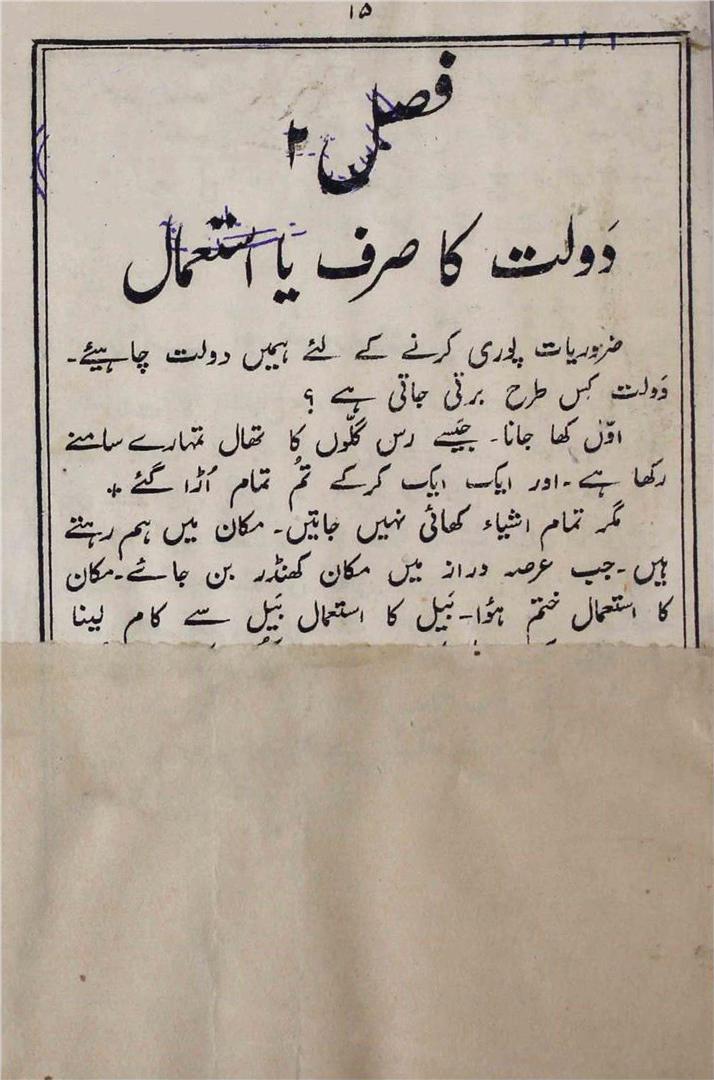 ۱۵
فصل ۲
دَولت کا صرف یا استعمال
ضروریات پوری کرنے کے لئے ہمیں دولت چاہیئے۔
دَولت کِس طرح برتی جاتی ہے ؟
اوّل کھا جانا۔ جَیسے رس گلّوں کا تھال تمہارے سامنے
رکھا ہے۔ اور ایک ایک کرکے تُم تمام اُڑا گئے *
مگر تمام اشیاء کھائی نہیں جاتیں۔ مکان میں ہم رہتے
ہیں۔ جب عرصہ دراز میں مکان کھنڈر بن جائے۔ مکان
کا استعمال ختم ہؤا۔ بَیل کا استعمال بَیل سے کام لینا